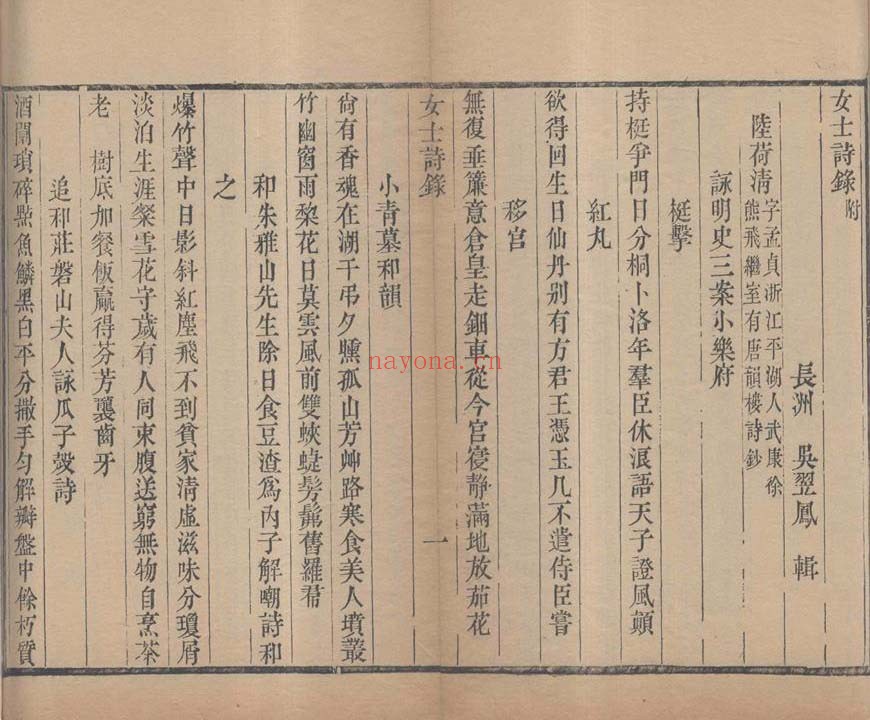 女士詩錄附
長洲 吳翌鳳 輯
陸荷清字孟貞浙江平湖人武康徐
熊飛繼室有唐韻樓詩鈔
詠明史三案小樂府
梃擊
持梃爭門日分桐卜洛年羣臣休浪語天子證風顛
紅丸
欲得回生日仙丹别有方君王憑玉几不遣侍臣嘗
移宫
無復垂簾意倉皇走鈿車從今宫寢静滿地放茄花
女士詩錄
一
小青墓和韻
尙有香魂在湖干弔夕曛孤山芳艸路寒食美人墳叢
竹幽窗雨棃花日莫雲風前雙蛺蜨髣髴舊羅帬
和朱雅山先生除日食豆渣爲内子解嘲詩和
之
爆竹聲中日影斜紅塵飛不到貧家清虛滋味分瓊屑
淡泊生涯粲雪花守歲有人同束腹送窮無物自烹茶
老 樹底加餐飯贏得芬芳襲齒牙
追和莊磐山夫人詠瓜子殼詩
酒闌瑣碎點魚鱗黑白平分撒手勻解瓣盤中餘朽質
nayona.cn